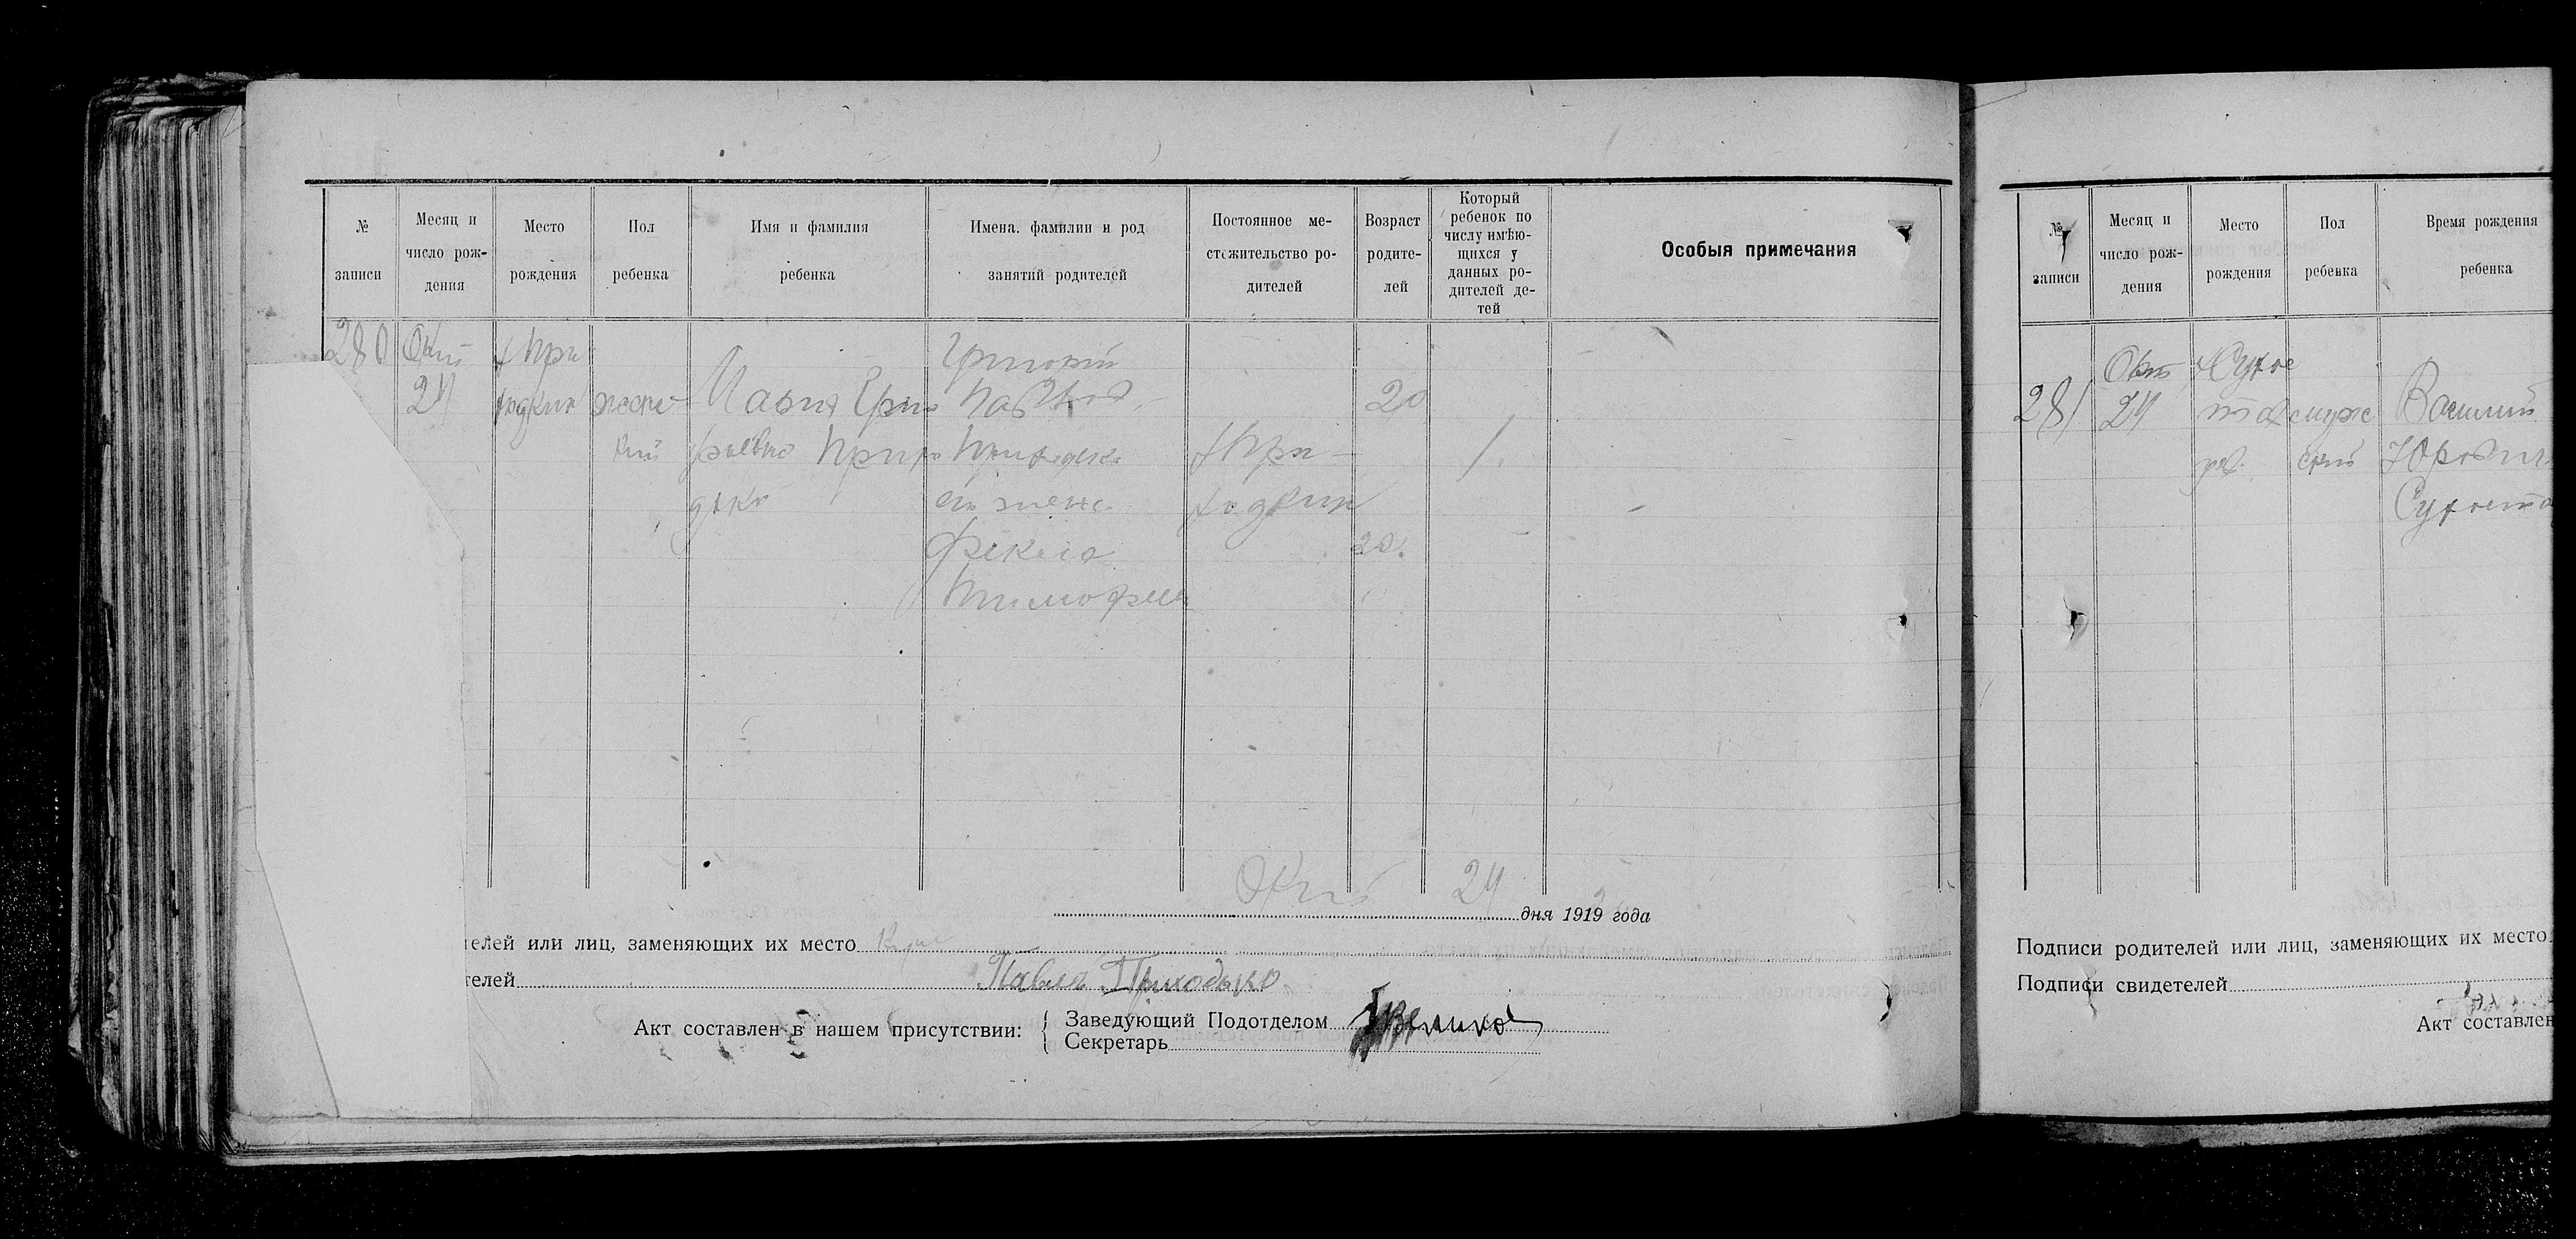 № записи
Месяц и число рож-дения
Место рождения
Пол ребенка
Имя и фамилия ребенка
Имена. фамилии и род занятий родителей
Постоянное ме-стожительство ро-дителей
Возраст родите-лей
Который ребенок по числу имѣю-щихся у данных ро-дителей де-тей
Особыя примечания
280
Окт
24
х При
ходькин
женс-
кий
Мария Григо
рьевна Прихо
дько
Григорий
Павлов
Приходько
его жена
Фекла
Тимофеев
х При-
ходькин
20
20.
1.
Окт 24
дня 1919 года
телей или лиц, заменяющих их место
телей Павел Приходько
Акт составлен в нашем присутствии:
Заведующий Подотделом
Секретарь
№ записи
Месяц и число рож-дения
Место рождения
Пол ребенка
Время рождения ребенка
281
Окт
24
х Сухос
муж
ский
Василий
Сухоста
Подписи родителей или лиц, заменяющих их место
Подписи свидетелей
Акт составлен